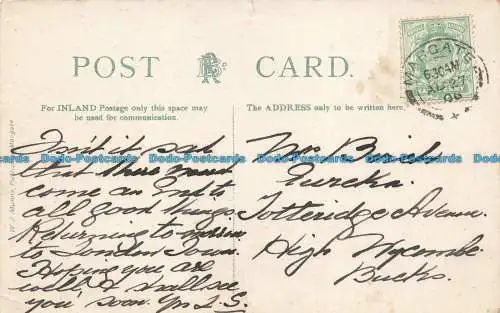 POST CARD.
MARGATE
630AM
AU 27
06
For INLAND Postage only this space may
be used for communication.
The ADDRESS only to be written here.
Isn't it sad
that there must
come an End to
all good things
Returning to
to London Town.
Hoping you are
well & shall see
you soon. Yrs L.S.
Mr Birch
Eureka.
Totteridge Avenue.
High Wycombe
Bucks.
Postcards Postcards Postcards Postcards Postcards Postcards